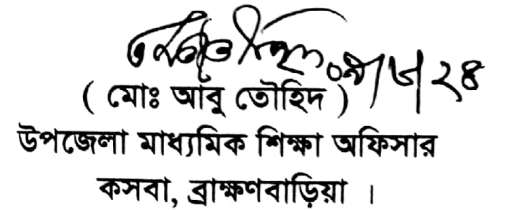 ( মোঃ আবু তৌহিদ )
উপজেলা মাধ্যমিক শিক্ষা অফিসার
কসবা, ব্রাক্ষণবাড়িয়া ।